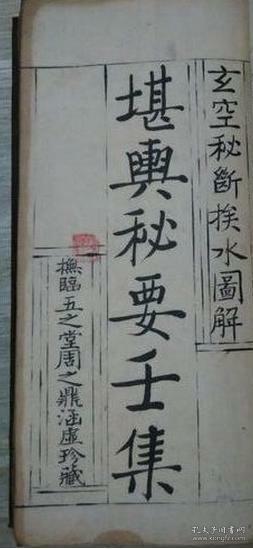 玄空秘斷挨水圖解
堪輿秘要壬集
撫臨五之堂周之鼎涵虛珍藏